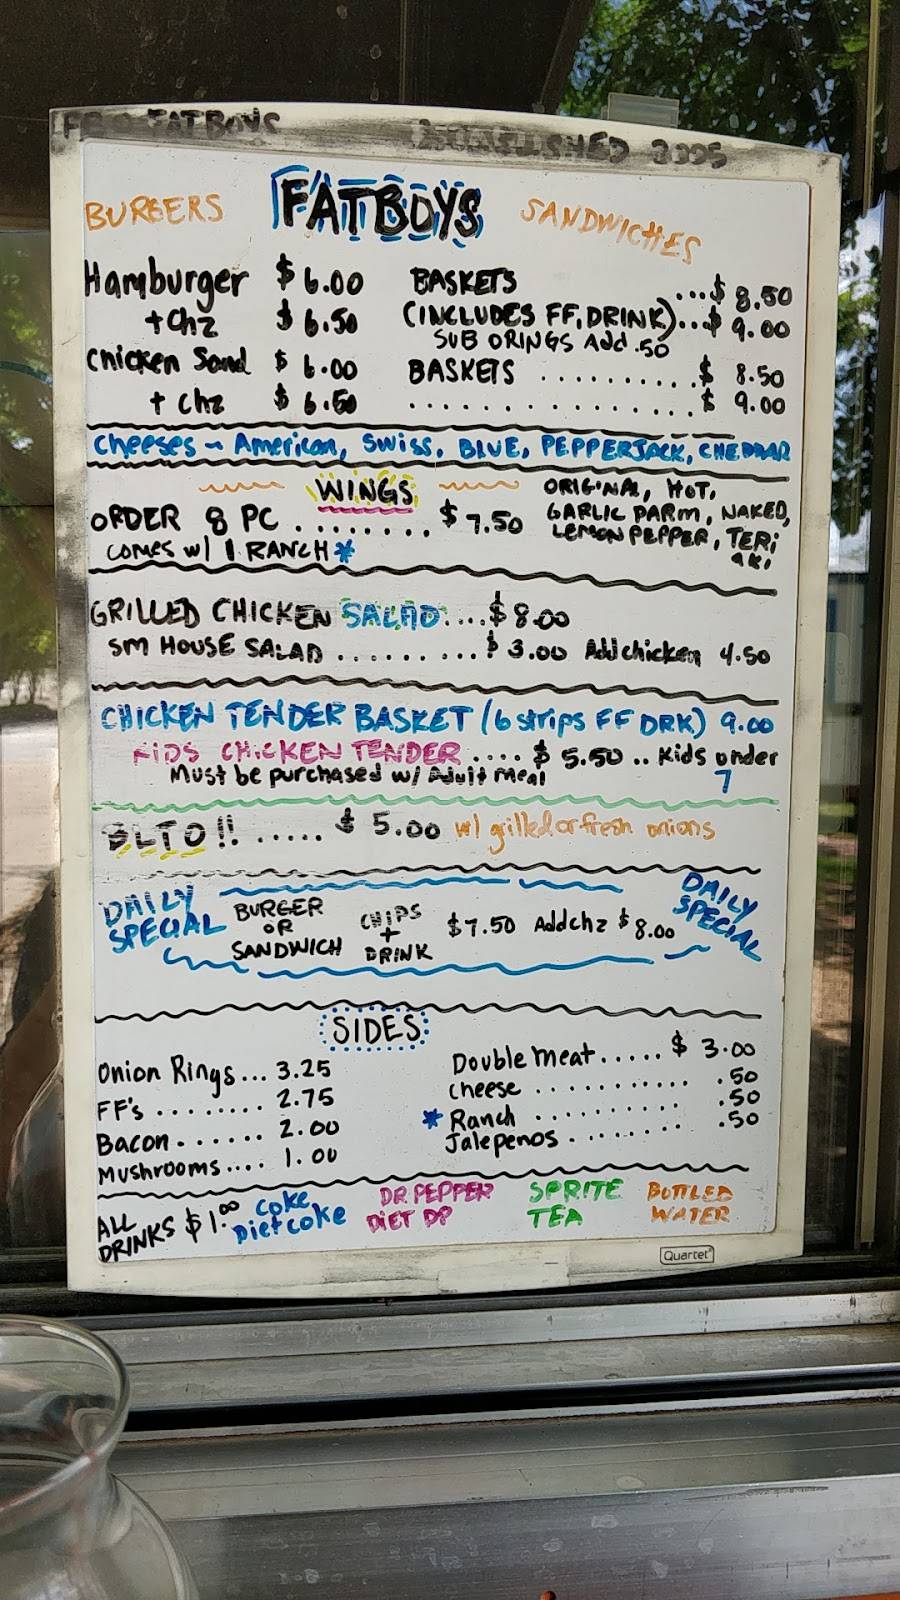 FATBOYS ESTABLISHED 2005
BURGERS FATBOYS SANDWICHES
Hamburger $6.00 BASKETS ...$ 8.50
+chz $6.50 (INCLUDES FF, DRINK)...$ 9.00
SUB ORINGS Add .50
Chicken Sand $6.00 BASKETS .........$ 8.50
+ chz $6.50 ................$ 9.00
Cheeses ~ American, SWISS, BLUE, PEPPERJACK, CHEDDAR
WINGS
ORDER 8 PC ........ $7.50
COMES w/ 1 RANCH*
ORIGINAL, HOT,
GARLIC PARM, NAKED,
LEMON PEPPER, TERI
AKI
GRILLED CHICKEN SALAD....$8.00
SM HOUSE SALAD ..........$ 3.00 Add chicken 4.50
CHICKEN TENDER BASKET (6 strips FF DRK) 9.00
KIDS CHICKEN TENDER .... $ 5.50 .. Kids under
Must be purchased w/ Adult meal 7
BLTO!! ..... $ 5.00 w/ grilled or fresh onions
DAILY
SPECIAL
BURGER
OR
SANDWICH
CHIPS
+
DRINK
$7.50 Add chz $8.00
DAILY
SPECIAL
SIDES
Onion Rings... 3.25
FF's ........ 2.75
Bacon ....... 2.00
Mushrooms.... 1.00
Double Meat..... $ 3.00
Cheese ........... .50
* Ranch .......... .50
Jalepenos ........ .50
ALL
DRINKS $1.00
Coke
Diet coke
DR. PEPPER
DIET DP
SPRITE
TEA
BOTTLED
WATER
Quartet